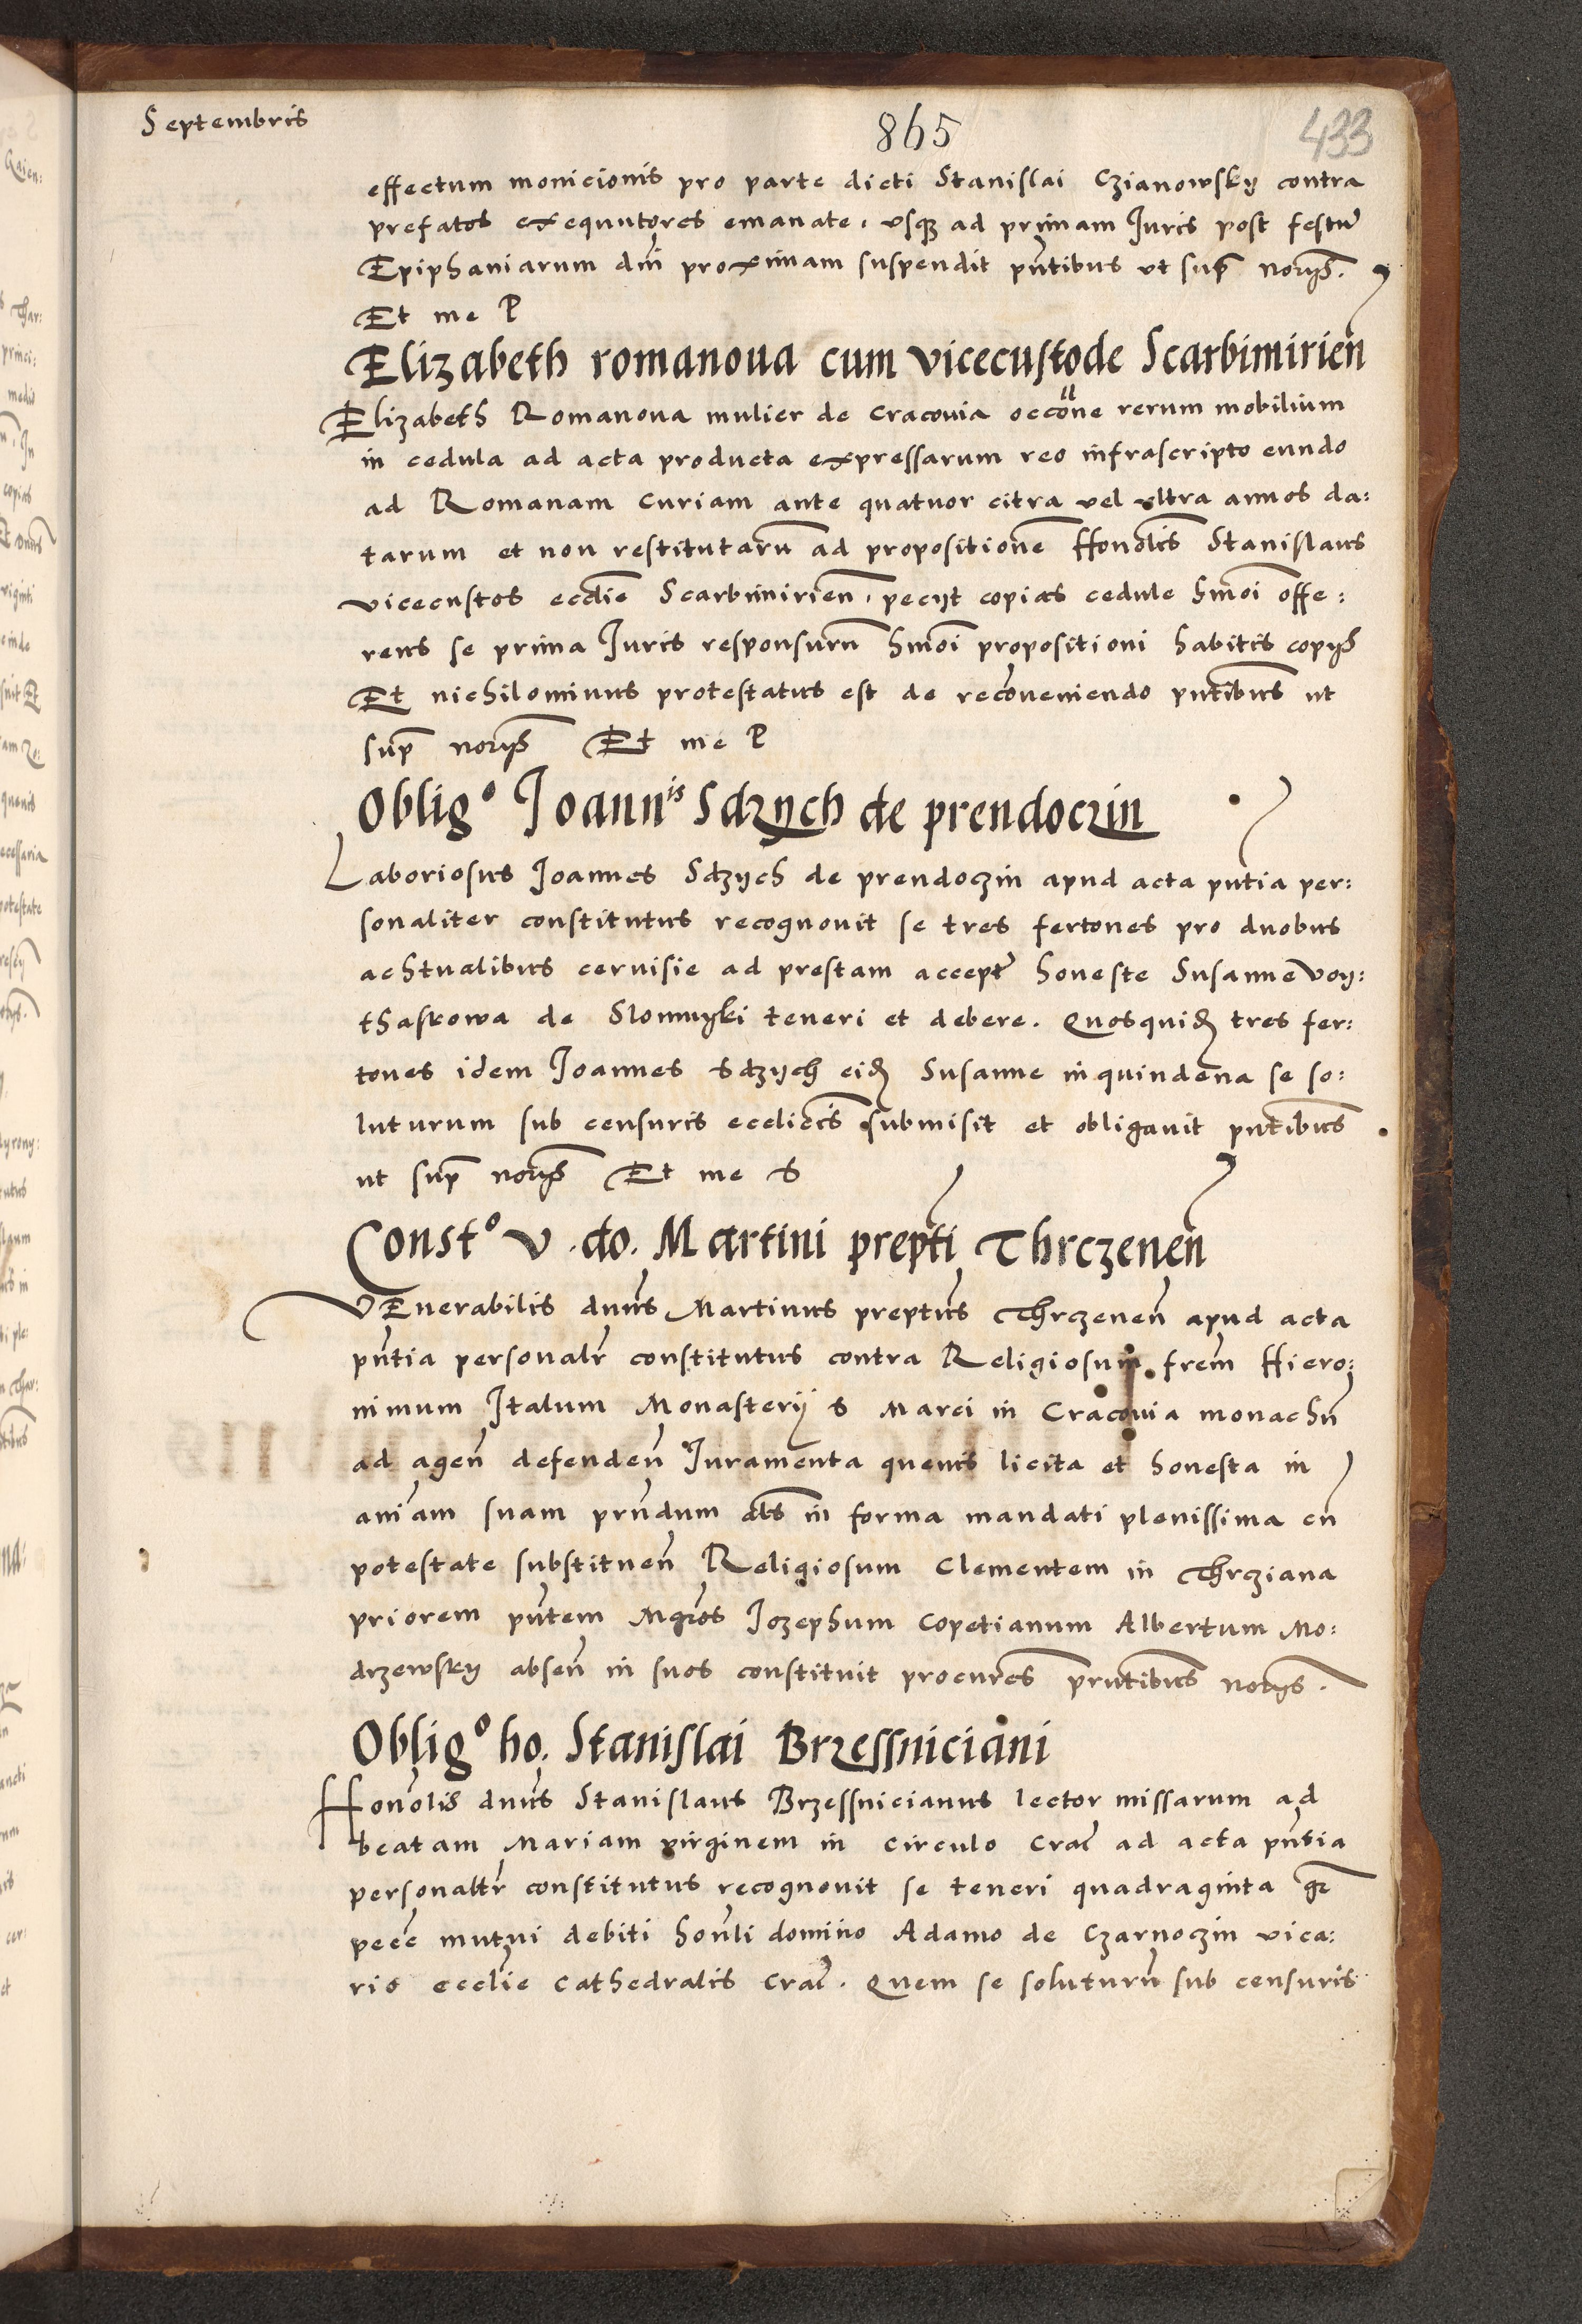 Septembris
865
433
effectum monicionis pro parte dicti Stanislai Czianowsky contra
prefatos exequutores emanate, usq3 ad primam Juris post festu͂
Epiphaniarum dni͂ proximam suspendit pn͂tibus ut sup͂ norijs͂.
Et me P
Elizabeth romanoua cum vicecustode Scarbimirien͂
Elizabeth Romanoua mulier de Cracouia occo͂ne rerum mobilium
in cedula ad acta producta expressarum reo infrascripto eundo
ad Romanam Curiam ante quatuor citra vel ultra annos da:
tarum et non restitutaru͂ ad propositione͂ Honolis͂ Stanislaus
vicecustos eccl͂ie Scarbimirien͂, pecijt copias cedule hm͂oi offe:
rens se prima Juris responsuru͂ hm͂oi propositioni habitis copijs
Et nichilominus protestatus est de reco͂ueniendo pn͂tibus ut
sup͂ norijs͂ Et me P
Oblig° Joannis Sdzych de prendoczin
Laboriosus Joannes Sdzych de prendoczin apud acta pn͂tia per:
sonaliter constitutus recognouit se tres fertones pro duobus
achtualibus ceruisie ad prestam accept͂ honeste Susanne Voy:
thaskowa de Slomnyki teneri et debere. Quosquid3 tres fer:
tones idem Joannes Sdzych eid3 Susanne in quindena se so:
luturum sub censuris eccl͂icis submisit et obligauit pn͂tibus
ut sup͂ norijs͂ Et me S
Const° v. do. Martini prepti͂ Thrczenen͂
VEnerabilis dnus͂ Martinus preptus͂ Thrczenen͂ apud acta
pn͂tia personalr͂ constitutus contra Religiosum frem͂ Hiero:
nimum Italum Monasterij S Marci in Cracouia monachu͂
ad agen͂ defenden͂ Juramenta queuis licita et honesta in
ani͂am suam prn͂dum als͂ in forma mandati plenissima cu͂
potestate substituen͂ Religiosum Clementem in Thrcziana
priorem pn͂tem Mgr͂os Jozephum Copetianum Albertum Mo:
drzewsky absen͂ in suos constituit procures͂ prn͂tibus norijs͂.
Oblig° ho. Stanislai Brzessniciani
Honol͂is dnus͂ Stanislaus Brzessnicianus lector missarum ad
beatam Mariam virginem in circulo Crac͂ ad acta pn͂tia
personaltr͂ constitutus recognouit se teneri quadraginta gr͂
pecc͂ mutui debiti honl͂i domino Adamo de Czarnoczin vica:
rio eccl͂ie Cathedralis Crac͂. Quem se soluturu͂ sub censuris